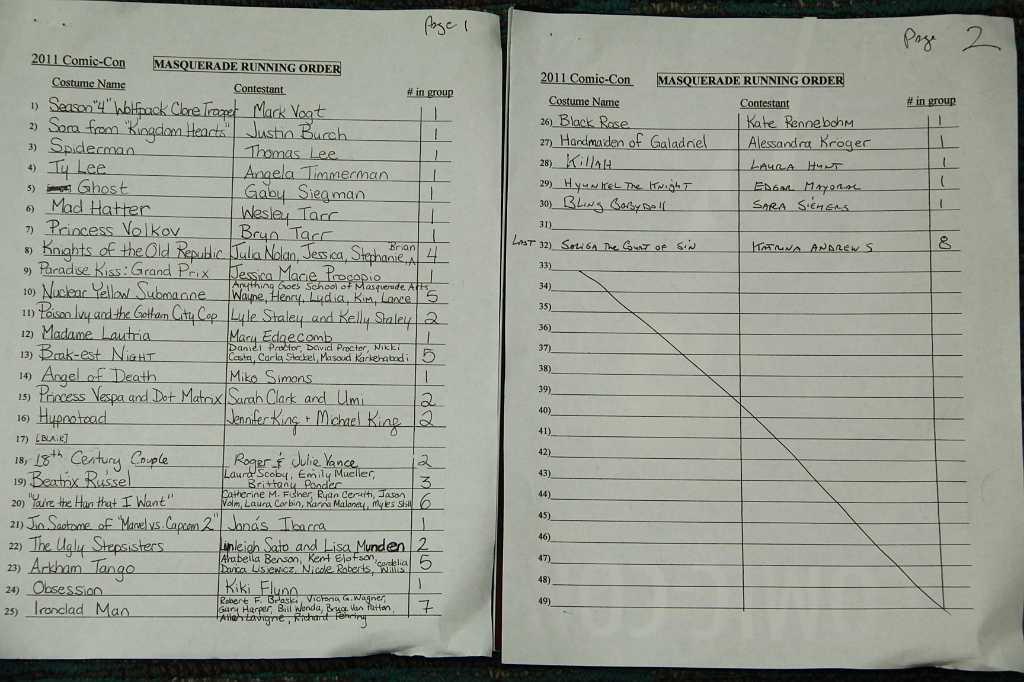 Page 1
2011 Comic-Con MASQUERADE RUNNING ORDER
Costume Name Contestant # in group
1) Season "4" Wolfpack Clone Trooper Mark Vogt 1
2) Sora from "Kingdom Hearts" Justin Burch 1
3) Spiderman Thomas Lee 1
4) Ty Lee Angela Timmerman 1
5) Ghost Gaby Siegman 1
6) Mad Hatter Wesley Tarr 1
7) Princess Volkov Bryn Tarr 1
8) Knights of the Old Republic Julia Nolan, Jessica, Stephanie, Brian 4
9) Paradise Kiss: Grand Prix Jessica Marie Procopio 1
Anything Goes School of Masquerade Arts
10) Nuclear Yellow Submarine Wayne, Henry, Lydia, Kim, Lance 5
11) Poison Ivy and the Gotham City Cop Lyle Staley and Kelly Staley 2
12) Madame Lautria Mary Edgecomb 1
Daniel Proctor, David Proctor, Nikki
13) Brak-est NIGHT Costa, Carla Stockel, Masoud 5
14) Angel of Death Miko Simons 1
15) Princess Vespa and Dot Matrix Sarah Clark and Umi 2
16) Hypnotoad Jennifer King + Michael King 2
17) [BLANK]
18) 18th Century Couple Roger & Julie Vance 2
Laura Scoby, Emily Mueller,
19) Beatrix Russel Brittany Ponder 3
Catherine M. Fisher, Ryan Cerutti, Jason
20) "You're the Han that I Want" Laura Corbin, Karina Maloney, Myles 6
21) Jin Saotome of "Marvel vs. Capcom 2" Jonas Ibarra 1
22) The Ugly Stepsisters Unleigh Sato and Lisa Munden 2
Arabella Benson, Kent Elofson, Cordelia
23) Arkham Tango Danca Lisiewicz, Nicole Roberts, Willis 5
24) Obsession Kiki Flynn 1
Robert F. Braski, Victoria G. Wagner,
25) Ironclad Man Gary Harper, Bill Wenda, Bruce Van Patton, 7
Allan Lavigne, Richard Fehring
Page 2
2011 Comic-Con MASQUERADE RUNNING ORDER
Costume Name Contestant # in group
26) Black Rose Kate Rennebohm 1
27) Handmaiden of Galadriel Alessandra Kroger 1
28) KILLAH LAURA HUNT 1
29) HYUNKEL THE KNIGHT EDGAR MAYORAL 1
30) BLING BABYDOLL SARA SIEMENS 1
31)
LAST 32) THE COURT OF SIN KATRINA ANDREWS 8
33)
34)
35)
36)
37)
38)
39)
40)
41)
42)
43)
44)
45)
46)
47)
48)
49)